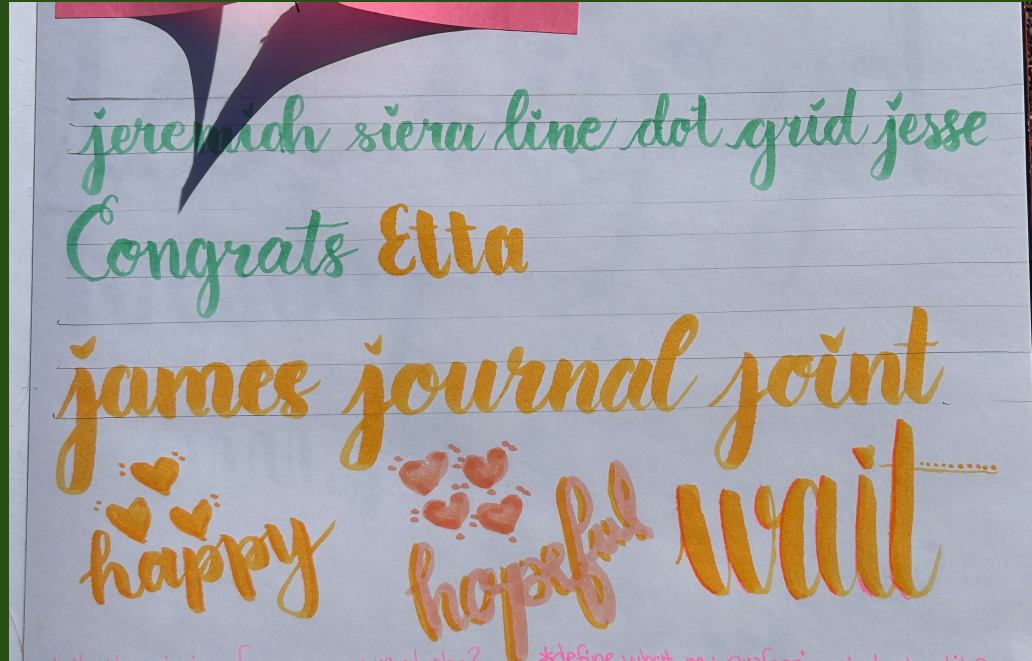 jeremiah siera line dot grid jesse
Congrats Etta
james journal joint
happy hopeful wait
*define what my